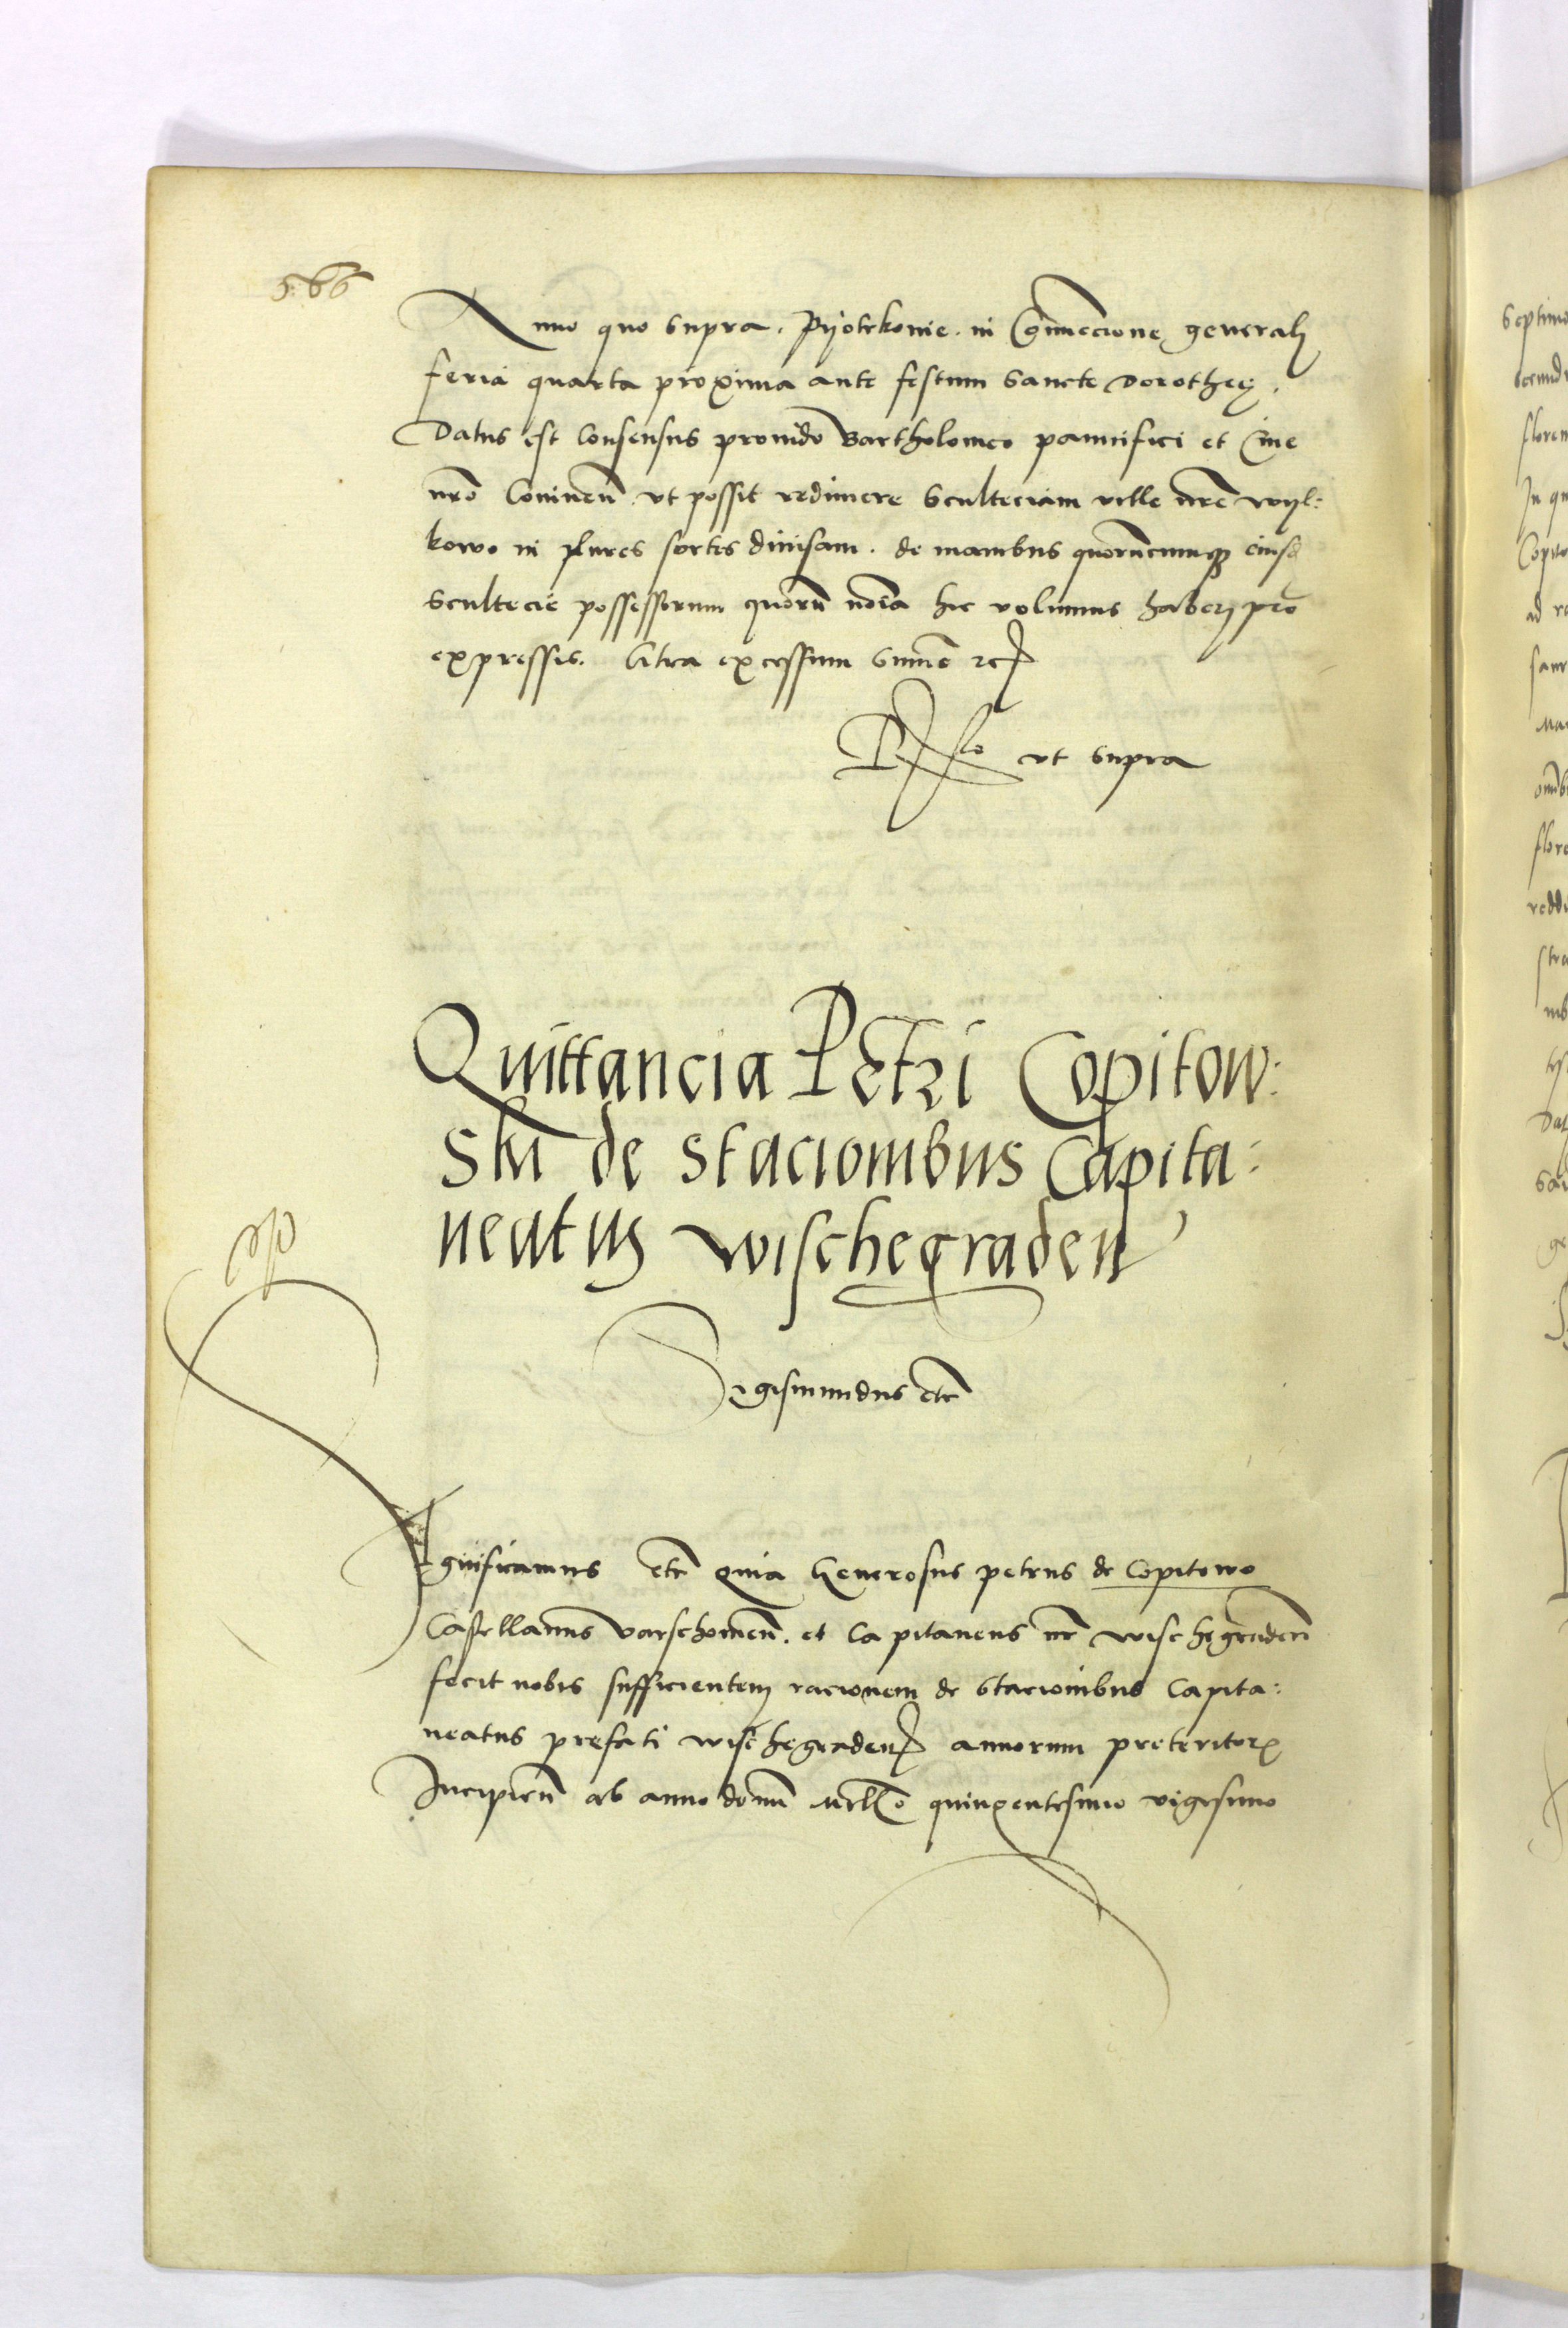 566
Anno quo supra. Pijotrkovie. in Convencione generali
feria quarta proxima ante festum Sancte Dorotheę.
Datus est Consensus provido Bartholomeo pannifici et Civi
nrō Coninen̄ ut possit redimere Sculteciam ville nrē wyl:
kowo in plures sortes divisam. de manibus quorūcumqꝫ eiusd
Scultecie possessorum quorū noīa hic volumus haberj pro
expressis. Citra excessum Summe ꝛcꝭ
Rlo ut supra
Quittancia Petri Copitow:
ski de stacionibus Capita:
neatus wischegraden̄
Sigismundus etc̄
Significamus etc̄ Quia Generosus petrus de Copitowo
Castellanus varschovien̄. et Capitaneus nr̄ wischegraden̄
fecit nobis sufficientem racionem de Stacionibus Capita:
neatus prefati wischegradenꝭ annorum preteritorꝫ
Incipien̄ ab anno domī Mill̄o quingentesimo vigesimo
Septimo
flore
In qu
ad
redd